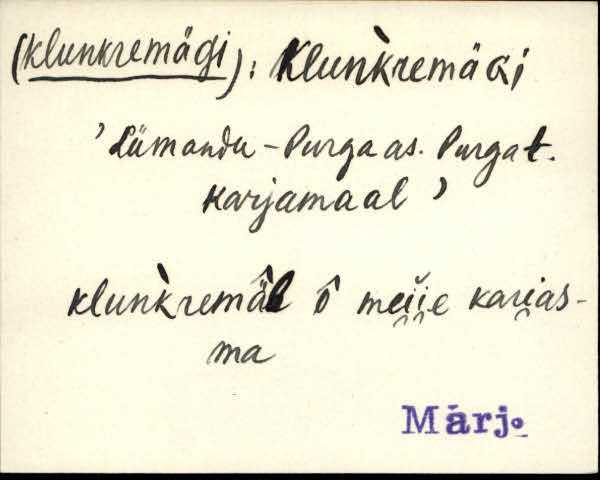 (klunkremägi): Klunk̀remäGi
'Lümandu - Purga as. Purga t.
karjamaal'
klunk̀remäl ô mei̯i̯e kari̯as-
ma
Märj.